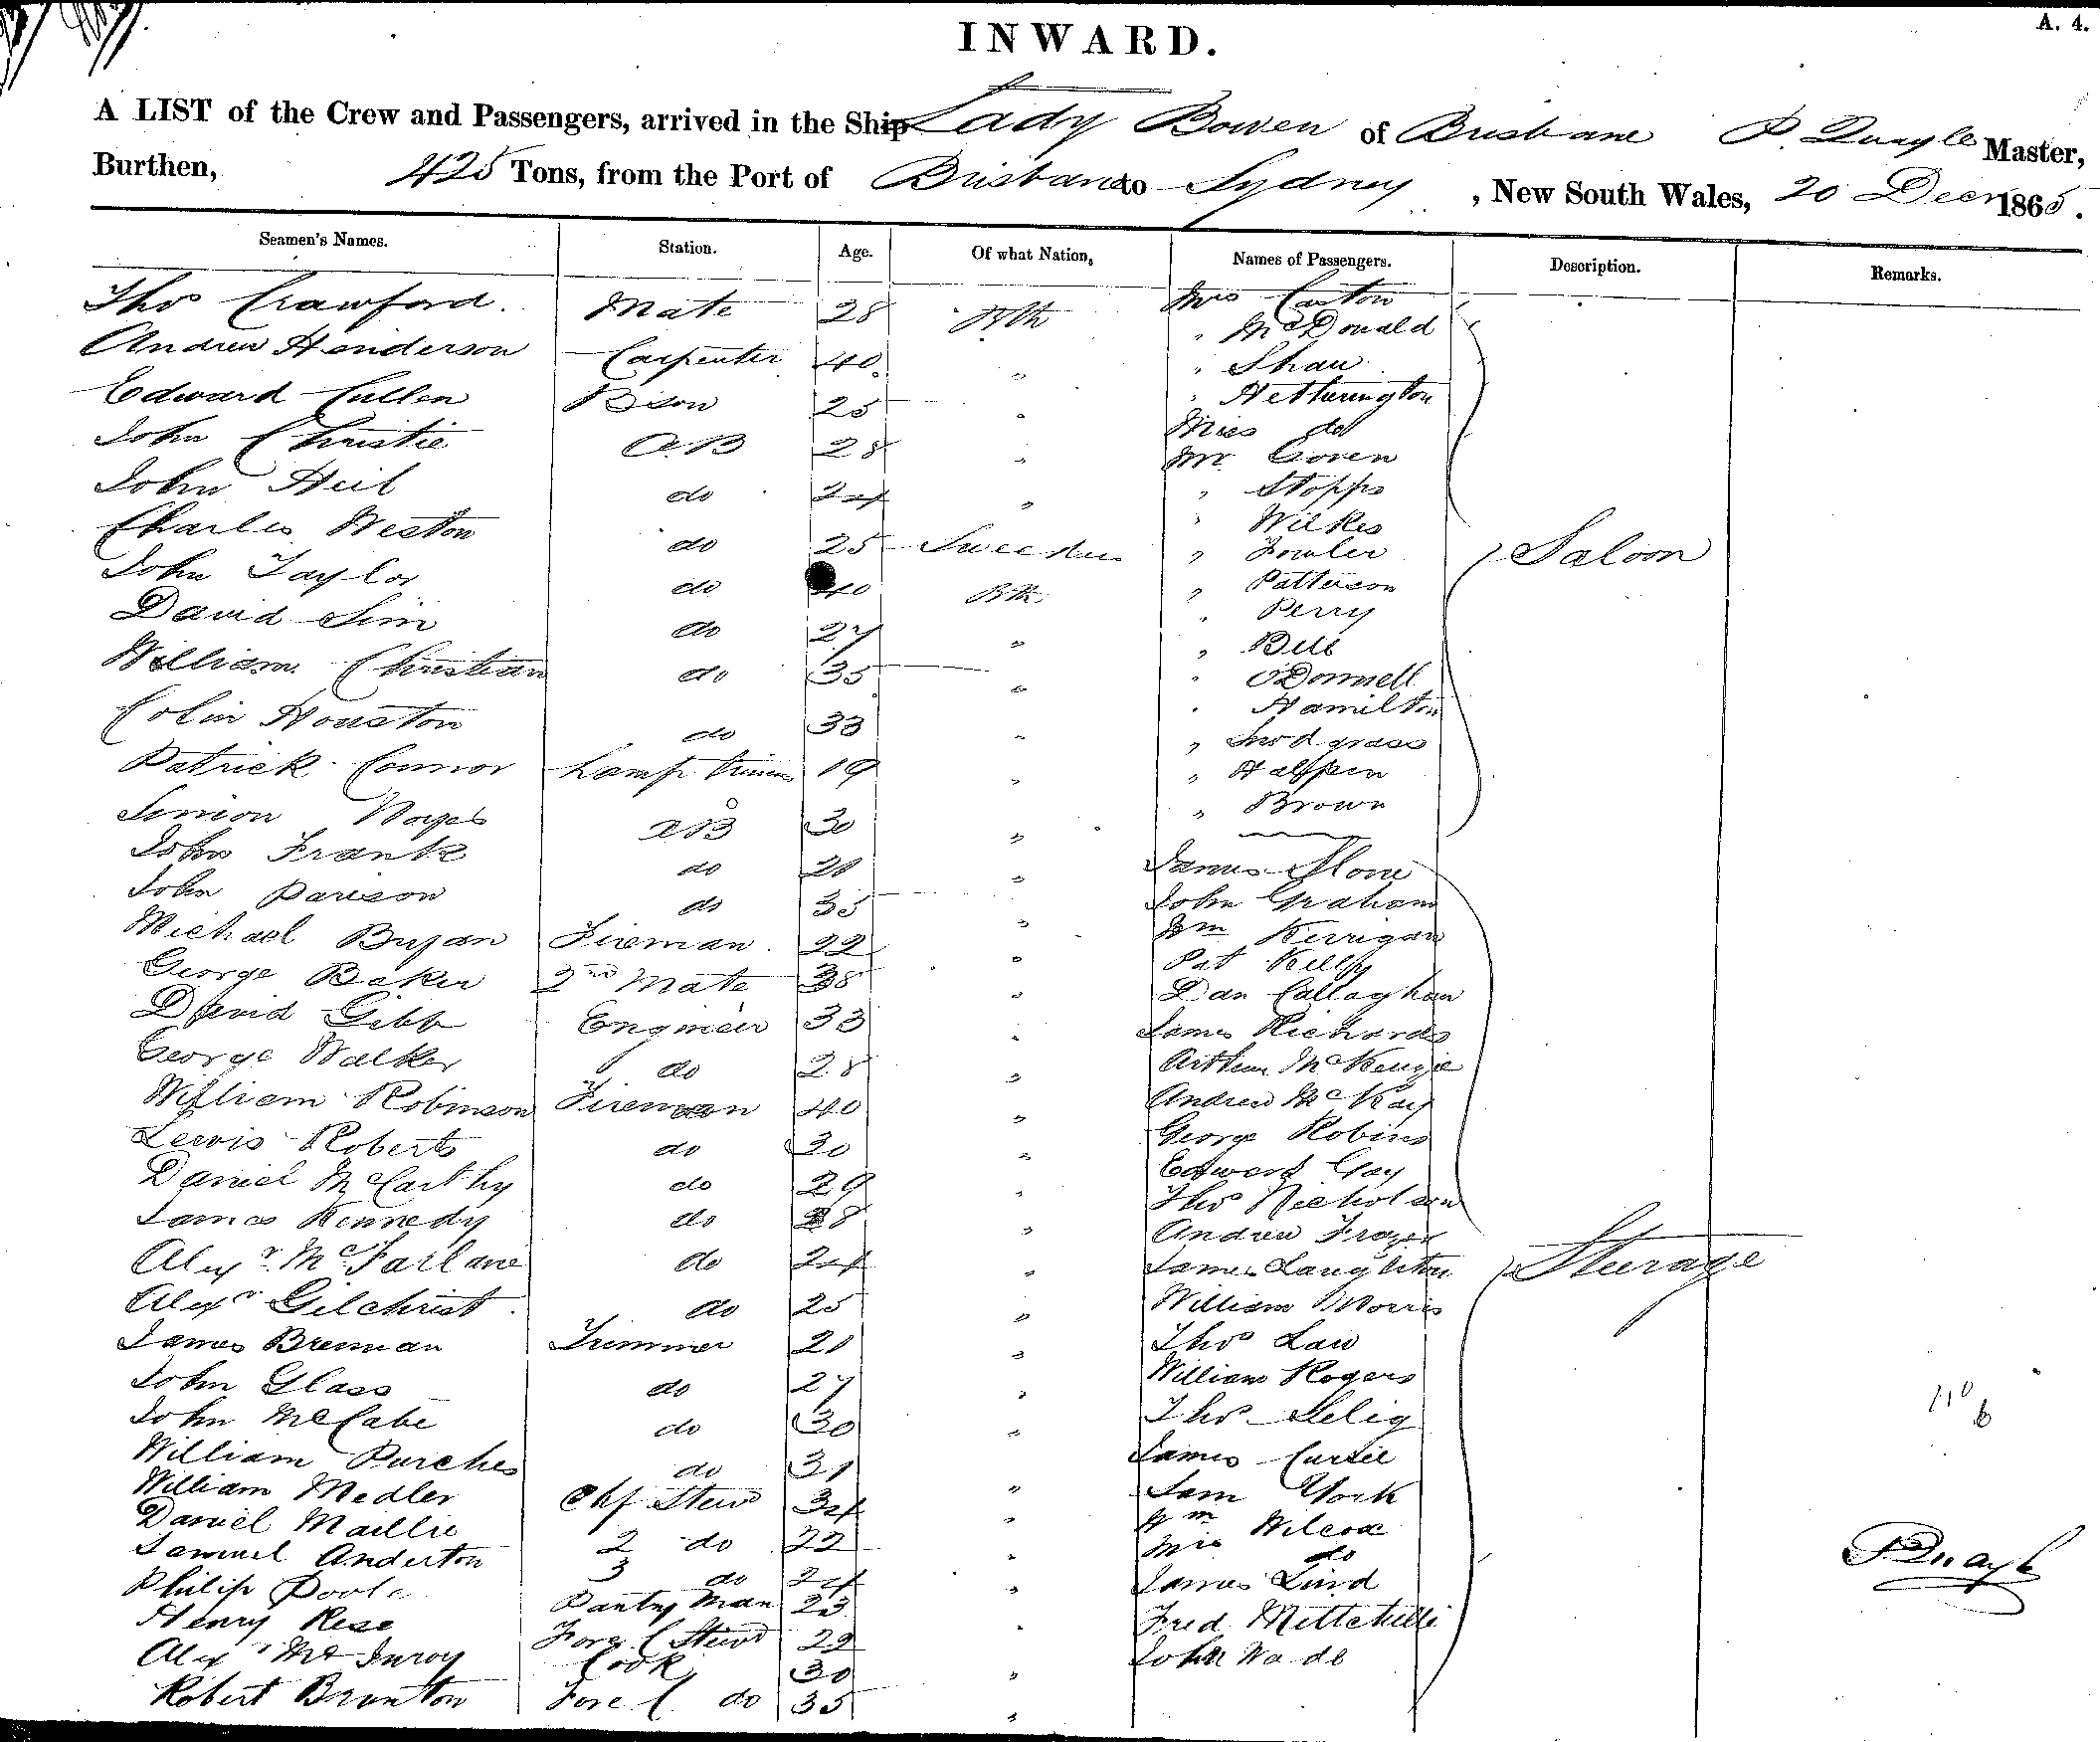 A. 4.
INWARD.
A LIST of the Crew and Passengers, arrived in the Ship Lady Bowen of Brisbane P. Quayle Master,
Burthen, 425 Tons, from the Port of Brisbane to Sydney , New South Wales, 20 Decr 1865.
Seamen's Names. Station. Age. Of what Nation, Names of Passengers. Description. Remarks.
Thos Crawford. Mate 28 Bth Mrs Caston
Andrew Henderson Carpenter 40 " " McDonald
Edward Cullen Bson 25 " " Shaw
John Christie AB 28 " " Hetherington
John Heil do 24 " Miss do
Charles Weston do 25 Sweeden Mr Coven
John Taylor do 40 Bth " Stopps
David Sim do 27 " " Wilkes
William Christian do 35 " " Fowler
Colin Houston do 33 " " Patterson
Patrick Connor Lamp Trimmer 19 " " Perry
Simion Noyes AB 30 " " Bell
John Frank do 20 " " O'Donnell
John Parison do 35 " " Hamilton
Michael Bryan Fireman 22 " " Snodgrass
George Baker 2nd Mate 38 " " Halpin
David Gibb Engineer 33 " " Brown
Saloon
George Walker do 28 " James Stone
William Robinson Fireman 40 " John Graham
Lewis Roberts do 30 " Wm Kerrigan
Daniel McCarthy do 29 " Pat Kelly
James Kennedy do 28 " Dan Callaghan
Alexr McFarlane do 24 " James Richards
Alexr Gilchrist do 25 " Arthur McKenzie
James Brennan Trimmer 21 " Andrew McKay
John Glass do 27 " George Robins
John McCabe do 30 " Edward Gay
William Purches do 31 " Thos Nicholson
William Medler Chf Stewd 34 " Andrew Frazer
Daniel Maillie 2 do 22 " James Laughton
Samuel Anderton 3 do 24 " William Morris
Philip Poole Pantry Man 23 " Thos Law
Henry Rese Fore C Stewd 22 " William Rogers
Alexr McInroy Cook 30 " Thos Selig
Robert Brunton Fore C. do 35 " James
Sam York
Wm Wilcox
Mrs do
James Lind
Fred
John Wade
Steerage
110
6
PQuayle